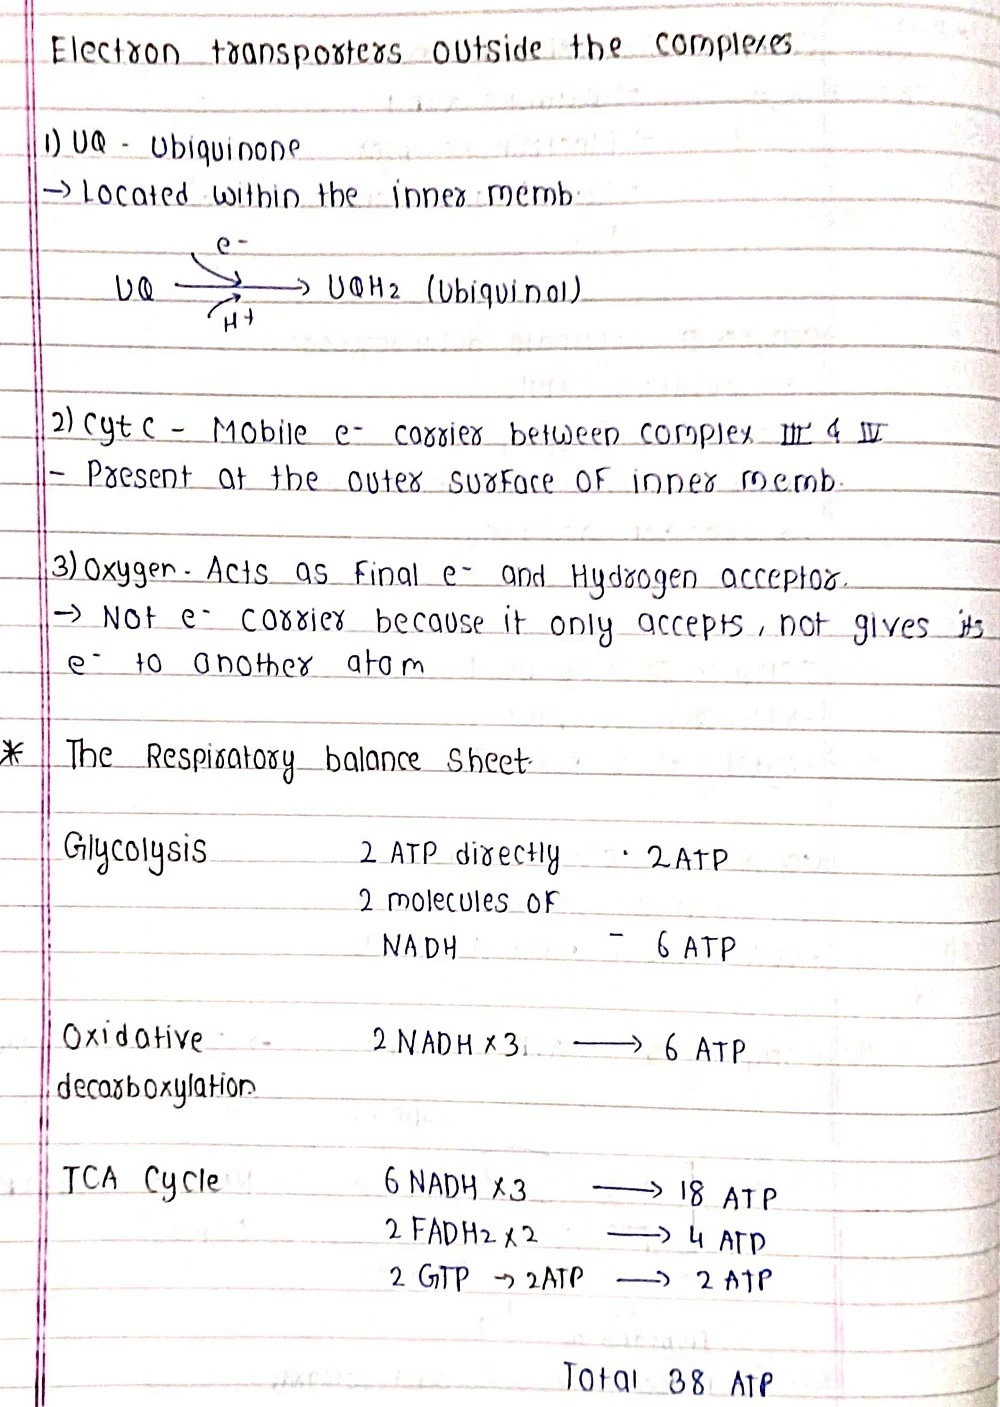 Electron transporters outside the complexes
1) UQ - Ubiquinone
→ Located within the inner memb.
e-
UQ → UQH2 (Ubiquinol)
H+
2) Cyt C - Mobile e- carrier between complex III & IV
- Present at the outer surface of inner memb.
3) Oxygen - Acts as final e- and Hydrogen acceptor.
→ Not e- carrier because it only accepts, not gives its
e- to another atom
* The Respiratory balance sheet
Glycolysis 2 ATP directly - 2 ATP
2 molecules of
NADH - 6 ATP
Oxidative - 2 NADH x 3 → 6 ATP
decarboxylation
TCA Cycle 6 NADH x 3 → 18 ATP
2 FADH2 x 2 → 4 ATP
2 GTP → 2ATP → 2 ATP
Total 38 ATP